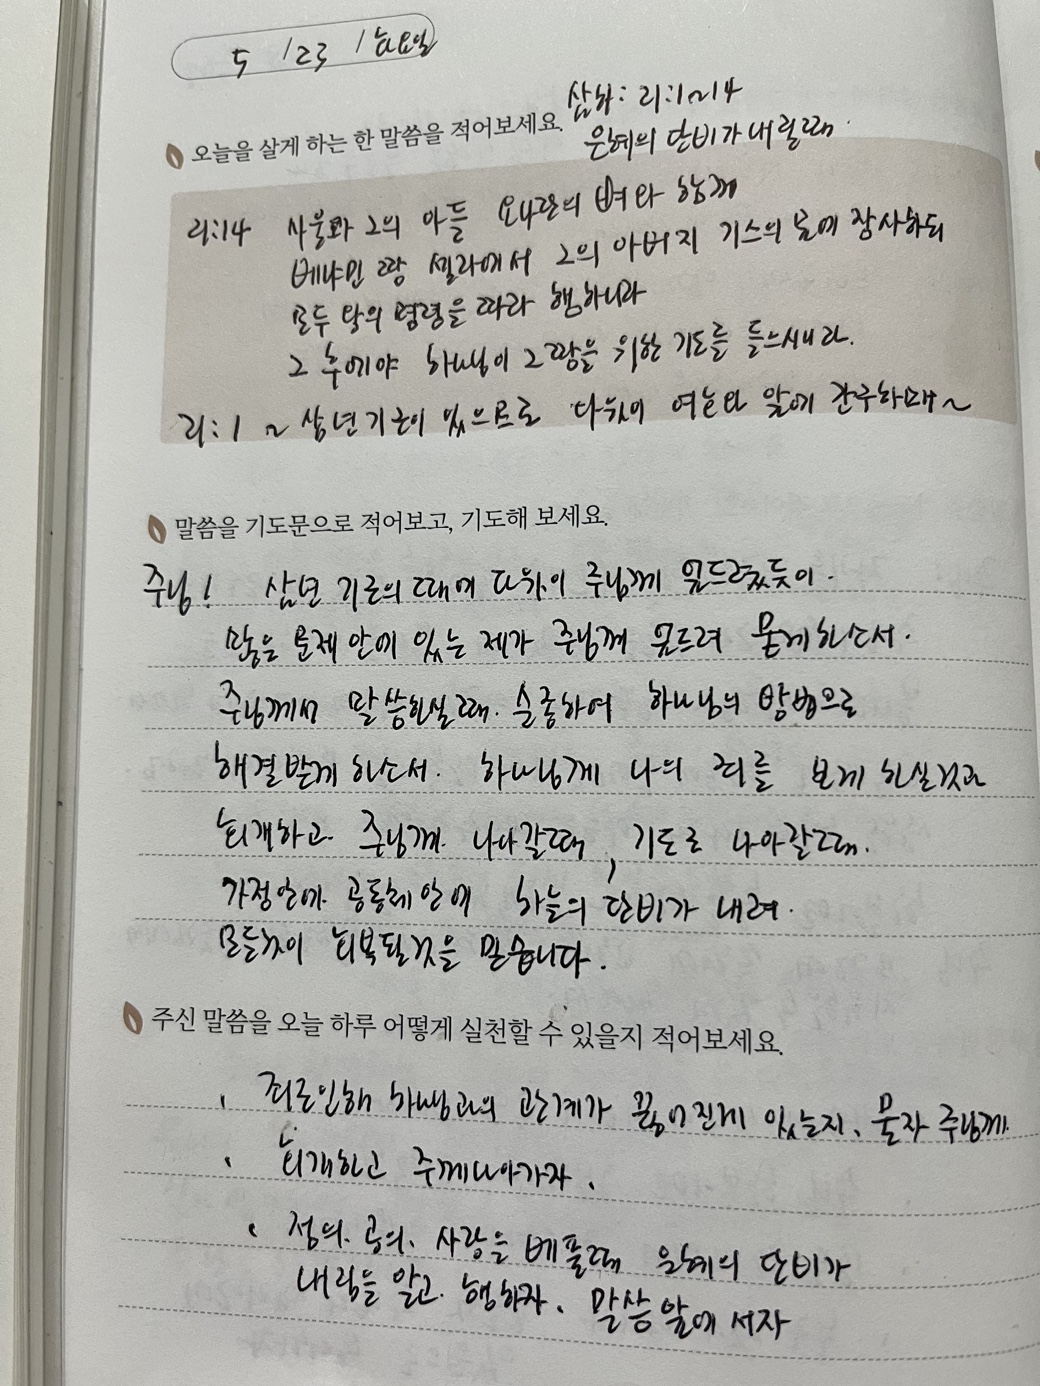 5 / 23 / 화요일
삼하: 21:1~14
오늘을 살게 하는 한 말씀을 적어보세요.
은혜의 단비가 내릴때
21:14 사울과 그의 아들 요나단의 뼈와 함께
베냐민 땅 셀라에서 그의 아버지 기스의 묘에 장사하되
모두 왕의 명령을 따라 행하니라
그 후에야 하나님이 그 땅을 위한 기도를 들으시니라.
21:1 ~ 삼년기근이 있으므로 다윗이 여호와 앞에 간구하매~
말씀을 기도문으로 적어보고, 기도해 보세요.
주님! 삼년 기근의 때에 다윗이 주님께 엎드렸듯이.
많은 문제 안에 있는 제가 주님께 엎드려 묻게하소서.
주님께서 말씀하실때. 순종하여 하나님의 방법으로
해결받게 하소서. 하나님께 나의 죄를 보게 하실것과
회개하고. 주님께. 나아갈때, 기도로 나아갈때.
가정안에. 공동체 안에 하늘의 단비가 내려.
모든것이 회복될것을 믿습니다.
주신 말씀을 오늘 하루 어떻게 실천할 수 있을지 적어보세요.
· 죄로인해 하나님과의 관계가 끊어진게 있는지, 묻자 주님께.
· 회개하고 주께나아가자.
· 정의. 공의. 사랑을 베풀때 은혜의 단비가
내림을 알고. 행하자. 말씀앞에 서자